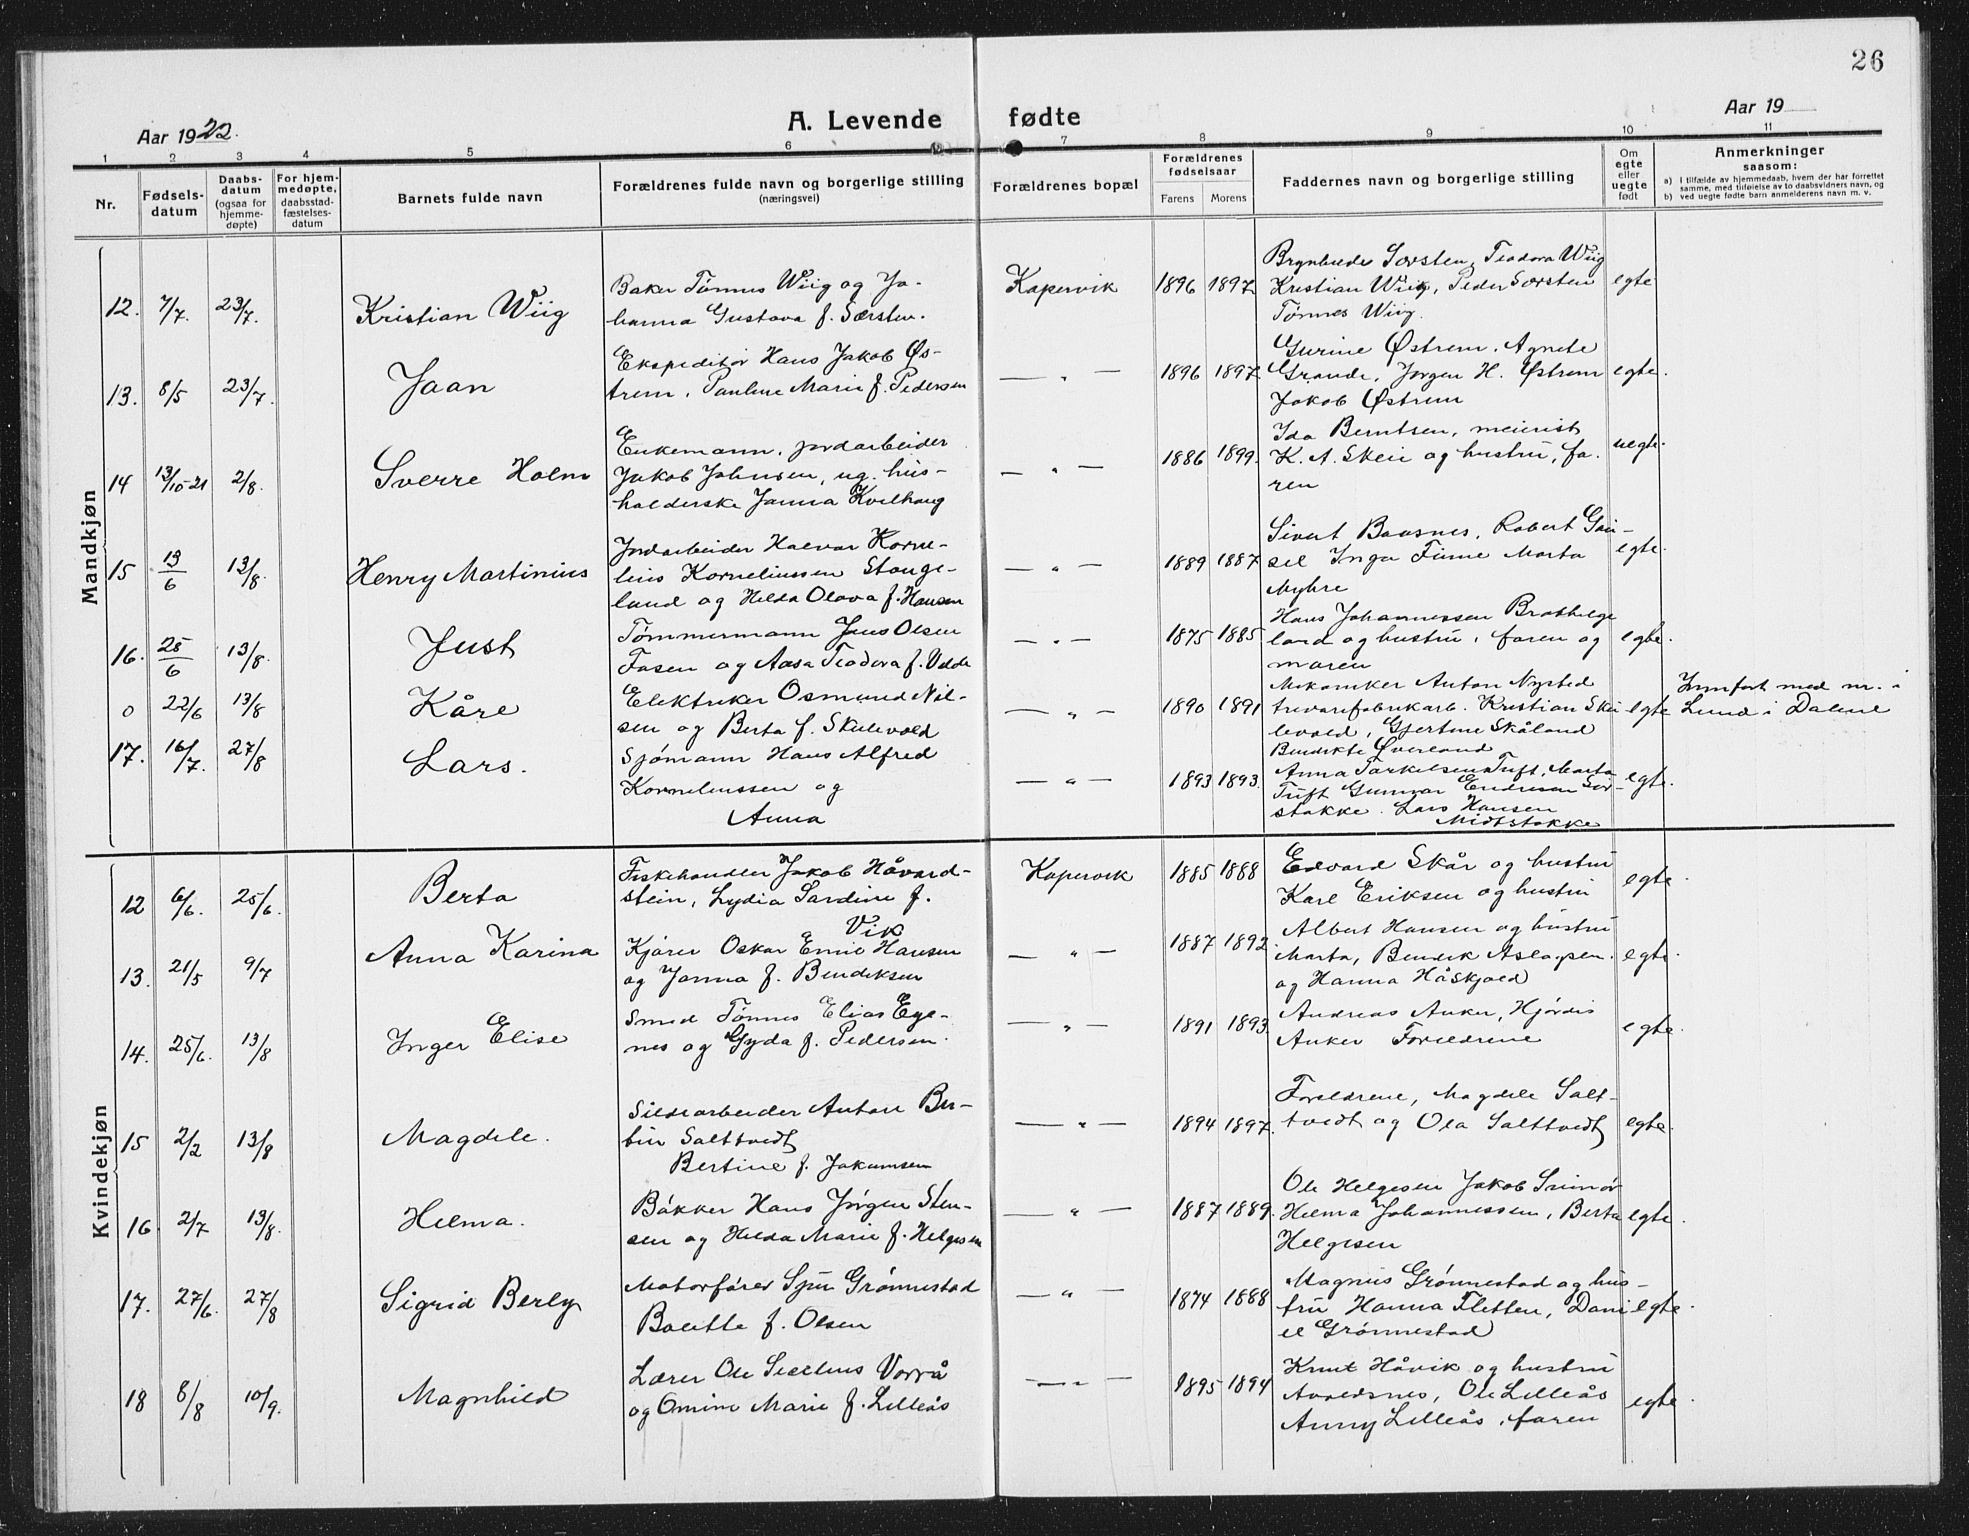 26
Aar 1922.
A. Levende fødte
Aar 19
1 2 3 4 5 6 7 8 9 10 11
Nr.
Fødsels-
datum
Daabs-
datum
(ogsaa for
hjemme-
døpte)
For hjem-
medøpte,
daabsstad-
fæstelses-
datum
Barnets fulde navn
Forældrenes fulde navn og borgerlige stilling
(næringsvei)
Forældrenes bopæl
Forældrenes
fødselsaar
Farens Morens
Faddernes navn og borgerlige stilling
Om
egte
eller
uegte
født
Anmerkninger
saasom:
a) I tilfælde av hjemmedaab, hvem der har forrettet
samme, med tilføielse av to daabsvidners navn, og
b) ved uegte fødte barn anmelderens navn m. v.
Mandkjøn
12. 7/7. 23/7. Kristian Wiig
Baker Tønnes Wiig og Jo-
hanna Gustava f. Sørsten.
Kopervik 1896 1897
Sørsten, Teodora Wiig
Kristian Wiig, Peder Sørsten
Tønnes Wiig.
egte
13. 8/5 23/7. Jaan
Ekspeditør Hans Jakob Øs-
trem, Pauline Marie f. Pedersen
— " — 1896 1897.
Gurine Østrem, Agnete
Grande, Jørgen H. Østrem
Jakob Østrem
egte.
14 13/10-21 2/8. Sverre Holm
Enkemann, jordarbeider
Jakob Johnsen, ug. hus-
holderske Janna Kvilhaug
— " — 1886 1899.
Ida Berntsen, meierist
K. A. Skeie og hustru, fa-
ren
uegte.
15 13/6 13/8. Henry Martinius
Jordarbeider Halvor Korne-
lius Korneliussen Stange-
land og Helda Olava f. Hansen
— " — 1889 1887
Sivert Baasnes, Robert
Inga Marta
Myhre
egte.
16. 25/6 13/8. Just
Tømmermann Jens Olsen
Fosen og Aasa Teodora f.
— " — 1875 1885
Hans Johannessen Brathelge
land og hustru, faren og
moren
egte.
0 22/6 13/8 Kåre
Elektriker Osmund Nil-
sen og Berta f. Skulevold
— " — 1890 1891
Mekaniker Anton Nysted
Kristian Sku
levold, Gjertine Skåland
Bendikte Øverland
egte
Innført med nr. i
Lund i Dalene
17. 16/7. 27/8 Lars.
Sjømann Hans Alfred
Korneliussen og
Anna
— " — 1893 1893.
Anna Torkelsen Tuft, Marta
Tuft Gunnar Endresen Sør-
stokke. Lars Hansen
Midtstokke
egte.
Kvindekjøn
12 6/6. 25/6. Berta
Fiskehandler Jakob Håvard-
stein, Lydia Sardine f.
Vik
Kopervik 1885 1888
Edvard Skår og hustru
Karl Eriksen og hustru
egte.
13. 21/5 9/7 Anna Karina
Kjører Oskar Emil Hansen
og Janna f. Bendiksen
— " — 1887 1892.
Albert Hansen og hustru
Marta, Bendik Aslagsen.
og Hanna Håskjold
egte.
14. 25/6. 13/8 Inger Elise
Smed Tønnes Elias Ege-
nes og Gyda f. Pedersen.
— " — 1891 1893.
Andreas Anker, Hjørdis
Anker Foreldrene
egte.
15 2/2 13/8 Magdele.
Sildearbeider Anton Ber-
tin Salttvedt
Bertine f. Jakobsen
— " — 1894 1897.
Foreldrene, Magdele Salt-
tvedt og Ola Salttvedt
egte.
16. 2/7 13/8. Helma.
Båkker Hans Jørgen Sten-
sen og Helda Marie f. Helgesen
— " — 1887 1889.
Ole Helgesen Jakob
Helma Johannessen, Berta
Helgesen
egte.
17. 27/6. 27/8 Sigrid Berly
Motorfører Sjur Grønnestad
Bolette f. Olsen
— " — 1874 1888
Magnus Grønnestad og hus-
tru Hanna Fletten, Dani
el Grønnestad
egte.
18 8/8 10/9. Magnhild
Lærer Ole Vorrå
og Omine Marie f. Lilleås
— " — 1895 1894
Knut Håvik og hustru
Avaldsnes, Ole Lilleås
Anny Lilleås, faren
egte.